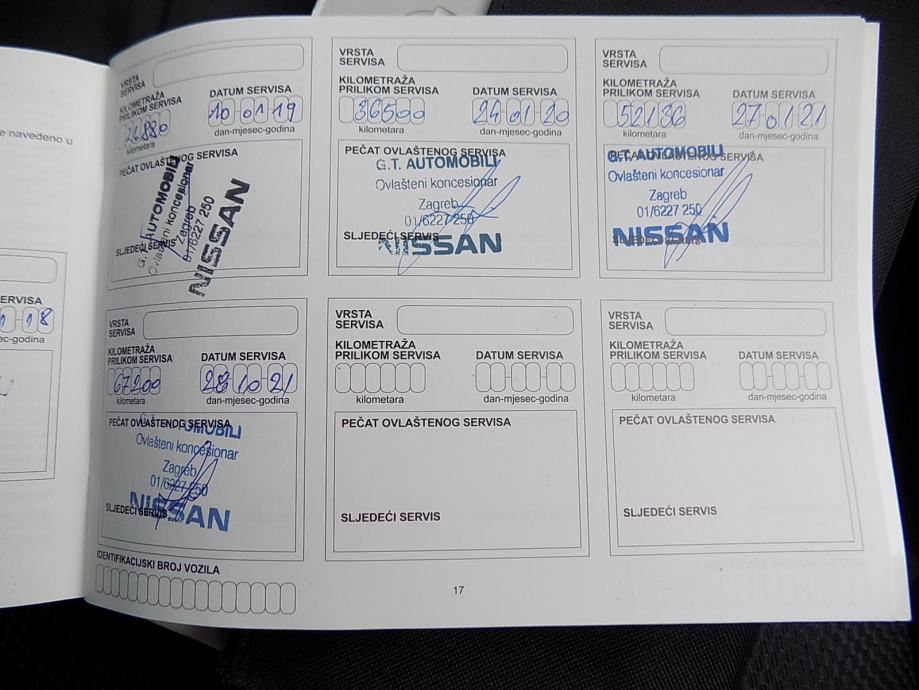 e navedeno u
ERVISA
18
ec-godina
VRSTA
SERVISA
KILOMETRAŽA
PRILIKOM SERVISA
DATUM SERVISA
10 01 19
kilometara
dan-mjesec-godina
PEČAT OVLAŠTENOG SERVISA
G.T. AUTOMOBILI
Ovlašteni koncesionar
Zagreb
01/6227 250
NISSAN
SLJEDEĆI SERVIS
VRSTA
SERVISA
KILOMETRAŽA
PRILIKOM SERVISA
DATUM SERVISA
36500
24 01 20
kilometara
dan-mjesec-godina
PEČAT OVLAŠTENOG SERVISA
G.T. AUTOMOBILI
Ovlašteni koncesionar
Zagreb
01/6227 250
SLJEDEĆI SERVIS
NISSAN
VRSTA
SERVISA
KILOMETRAŽA
PRILIKOM SERVISA
DATUM SERVISA
52186
27 01 21
kilometara
dan-mjesec-godina
PEČAT OVLAŠTENOG SERVISA
G.T. AUTOMOBILI
Ovlašteni koncesionar
Zagreb
01/6227 250
SLJEDEĆI SERVIS
NISSAN
VRSTA
SERVISA
KILOMETRAŽA
PRILIKOM SERVISA
DATUM SERVISA
67200
28 10 21
kilometara
dan-mjesec-godina
PEČAT OVLAŠTENOG SERVISA
G.T. AUTOMOBILI
Ovlašteni koncesionar
Zagreb
01/6227 250
SLJEDEĆI SERVIS
NISSAN
VRSTA
SERVISA
KILOMETRAŽA
PRILIKOM SERVISA
DATUM SERVISA
kilometara
dan-mjesec-godina
PEČAT OVLAŠTENOG SERVISA
SLJEDEĆI SERVIS
VRSTA
SERVISA
KILOMETRAŽA
PRILIKOM SERVISA
DATUM SERVISA
kilometara
dan-mjesec-godina
PEČAT OVLAŠTENOG SERVISA
SLJEDEĆI SERVIS
IDENTIFIKACIJSKI BROJ VOZILA
17